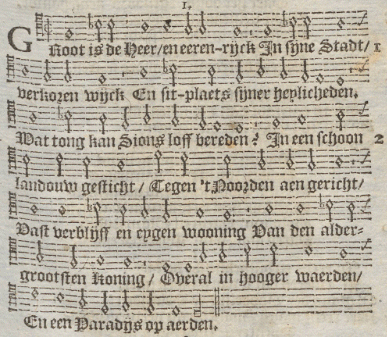 1.
GRoot is de Heer/ en eeren-rijck In sijne Stadt/ 1
verkoren wijck En sit-plaets sijner heylicheden.
Wat tong kan Sions loff bereden? In een schoon 2
landouw gesticht/ Tegen 't Noorden aen gericht/
Vast verblijff en eygen wooning Van den alder-
grootsten Koning/ Overal in hooger waerden/
En een Paradijs op aerden.